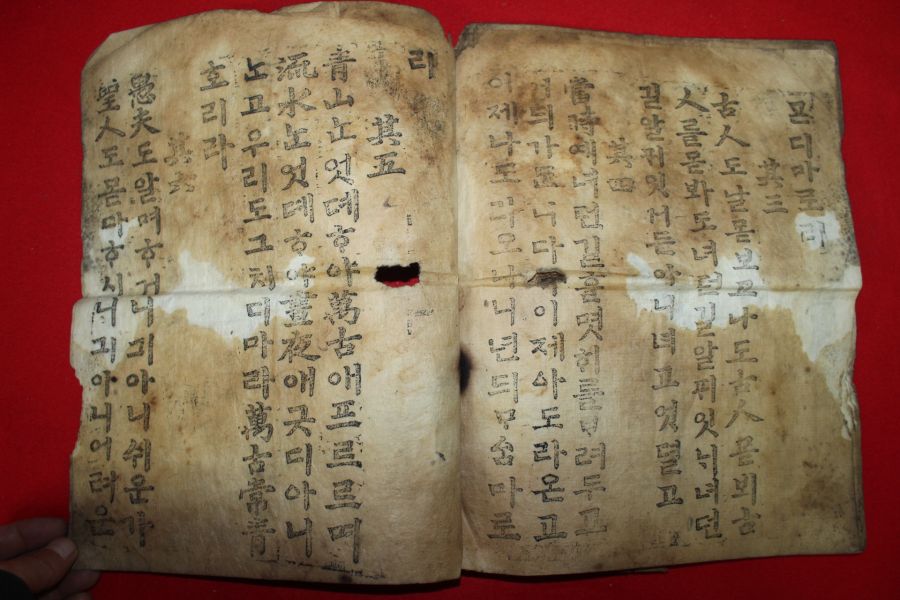 모디마로리
其三
古人도날몯보고나도古人몯뵈古
人를몯봐도녀던길알ᄑᆡ잇ᄂᆡ녀던
길알ᄑᆡ잇거든아니녀고엇뎔고
其四
當時예녀던길흘몃ᄒᆡ를ᄇᆞ려두고
어듸가 니다 이제아도라온고
이제나도라오나니년듸ᄆᆞᅀᆞᆷ마로
리
其五
靑山ᄂᆞᆫ엇뎨ᄒᆞ야萬古애프르르며
流水ᄂᆞᆫ엇뎨ᄒᆞ야晝夜애긋디아니
ᄂᆞᆫ고우리도그치디마라萬古常靑
호리라
其六
愚夫도알며ᄒᆞ거니긔아니쉬운가
聖人도몯다ᄒᆞ시니긔아니어려운